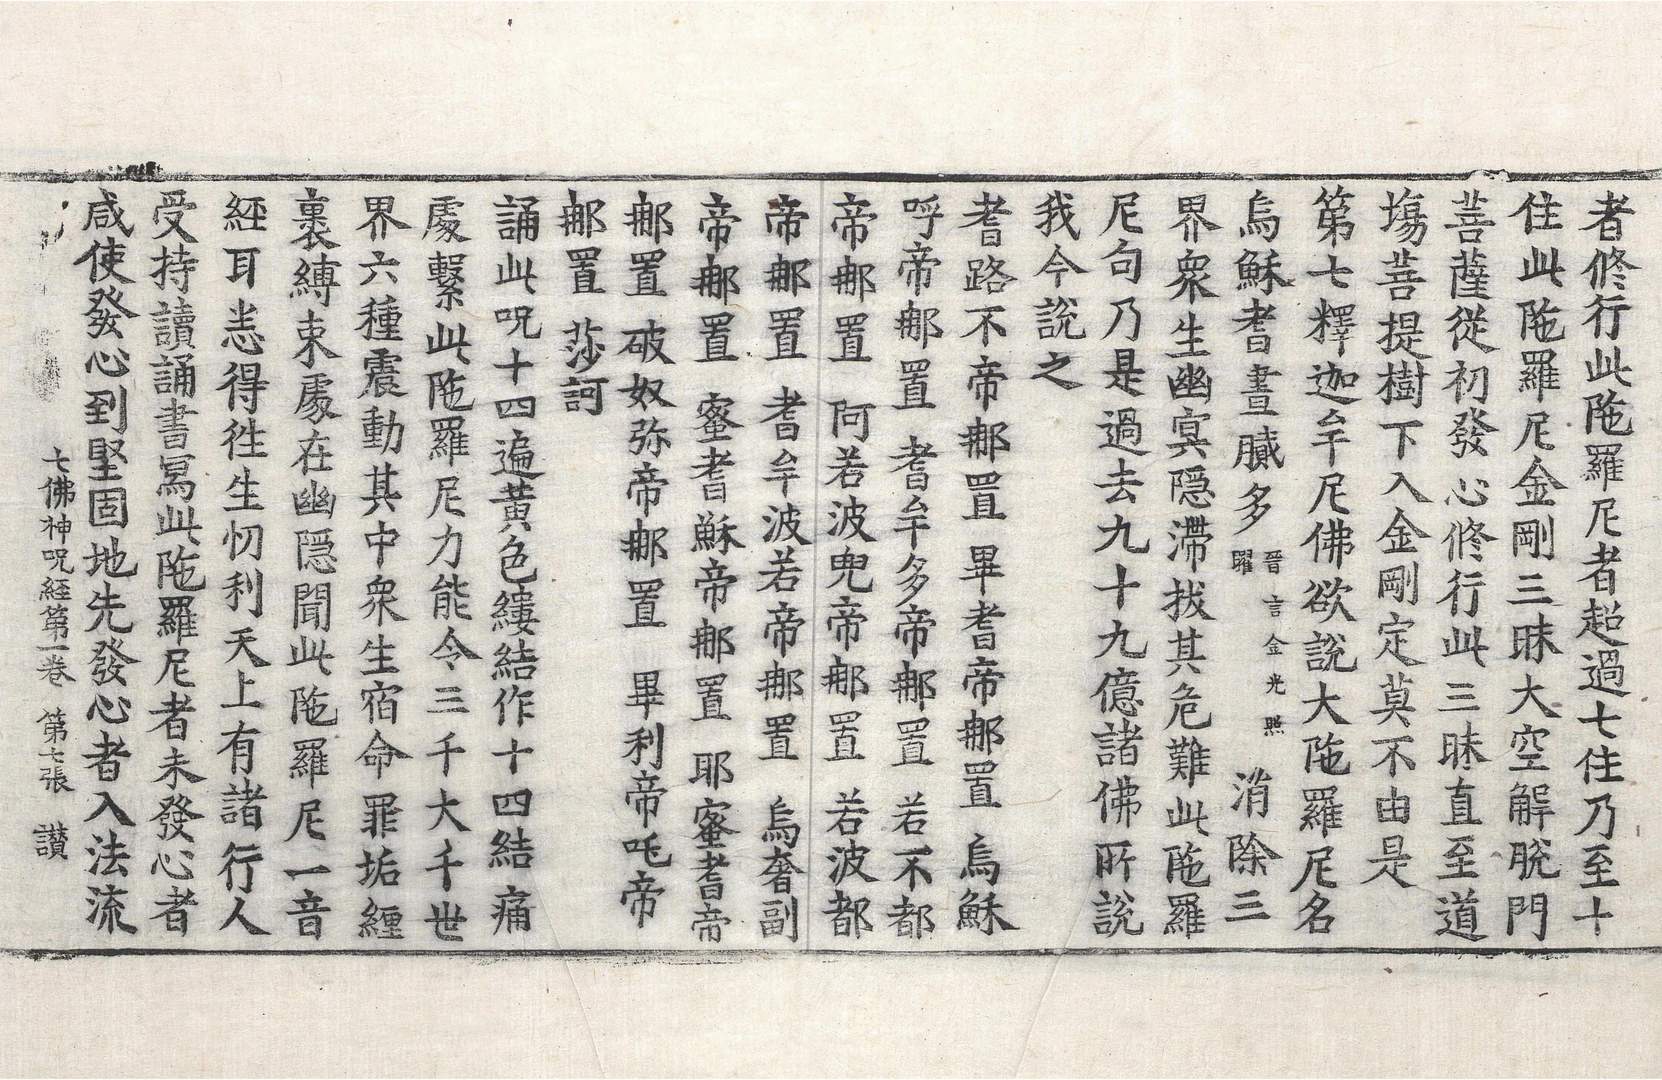 者修行此陁羅尼者超過七住乃至十
住此陁羅尼金剛三昧大空解脫門
菩薩從初發心修行此三昧直至道
塲菩提樹下入金剛定莫不由是
第七釋迦牟尼佛欲說大陁羅尼名
烏穌耆晝膩多 晉言金光照曜 消除三
界衆生幽冥隱滯拔其危難此陁羅
尼句乃是過去九十九億諸佛所說
我今說之
耆路不帝䣋置 畢耆帝䣋置 烏穌
呼帝䣋置 耆牟多帝䣋置 若不都
帝䣋置 阿若波兜帝䣋置 若波都
帝䣋置 耆牟波若帝䣋置 烏奢副
帝䣋置 蜜耆穌帝䣋置 耶蜜耆帝
䣋置 破奴弥帝䣋置 畢利帝吒帝
䣋置 莎訶
誦此呪十四遍黃色縷結作十四結痛
處繫此陁羅尼力能令三千大千世
界六種震動其中衆生宿命罪垢纏
裹縛束處在幽隱聞此陁羅尼一音
經耳悉得徃生忉利天上有諸行人
受持讀誦書寫此陁羅尼者未發心者
咸使發心到堅固地先發心者入法流
七佛神呪經第一卷 第七張 讃